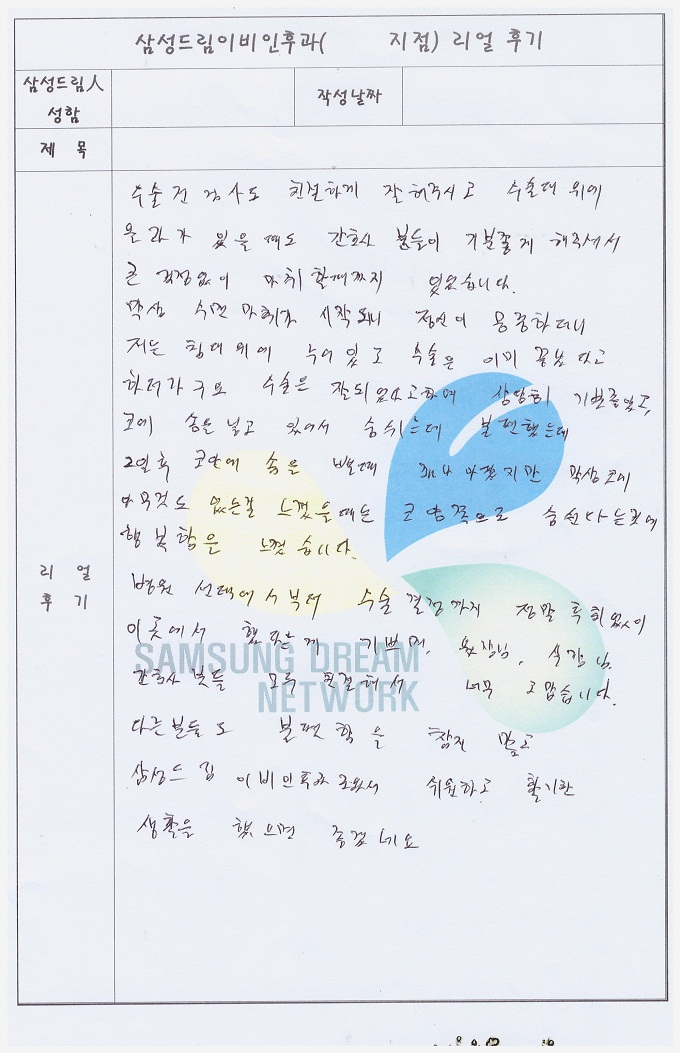 삼성드림이비인후과( 지점) 리얼 후기
삼성드림人
성함
작성날짜
제 목
리 얼
후 기
수술전 검사도 친절하게 잘 해주시고 수술대 위에
올라가 있을때도 간호사 분들이 기분좋게 해주셔서
큰 걱정없이 마취할때까지 있었습니다.
막상 수면 마취가 시작되니 정신이 몽롱하더니
저는 침대위에 누어있고 수술은 이미 끝났다고
하더라구요 수술은 잘되었다고하며 상당히 기쁘고
코에 솜을 넣고 있어서 숨쉬는데 불편했는데
2일후 코안에 솜을 뺄때 막상코에
아무것도 없는걸 느꼈을때는 코양쪽으로 숨쉰다는것에
행복함은 느꼈습니다.
병원 선택에서부터 수술결정까지 정말 후회없이
이곳에서 기쁘며, 원장님, 실장님,
간호사분들 모두 친절해서 너무 고맙습니다.
다른분들도 불편함을 참지 말고
삼성드림 이비인후과로와서 쉬원하고 활기찬
생활을 했으면 좋겠네요
SAMSUNG DREAM
NETWORK